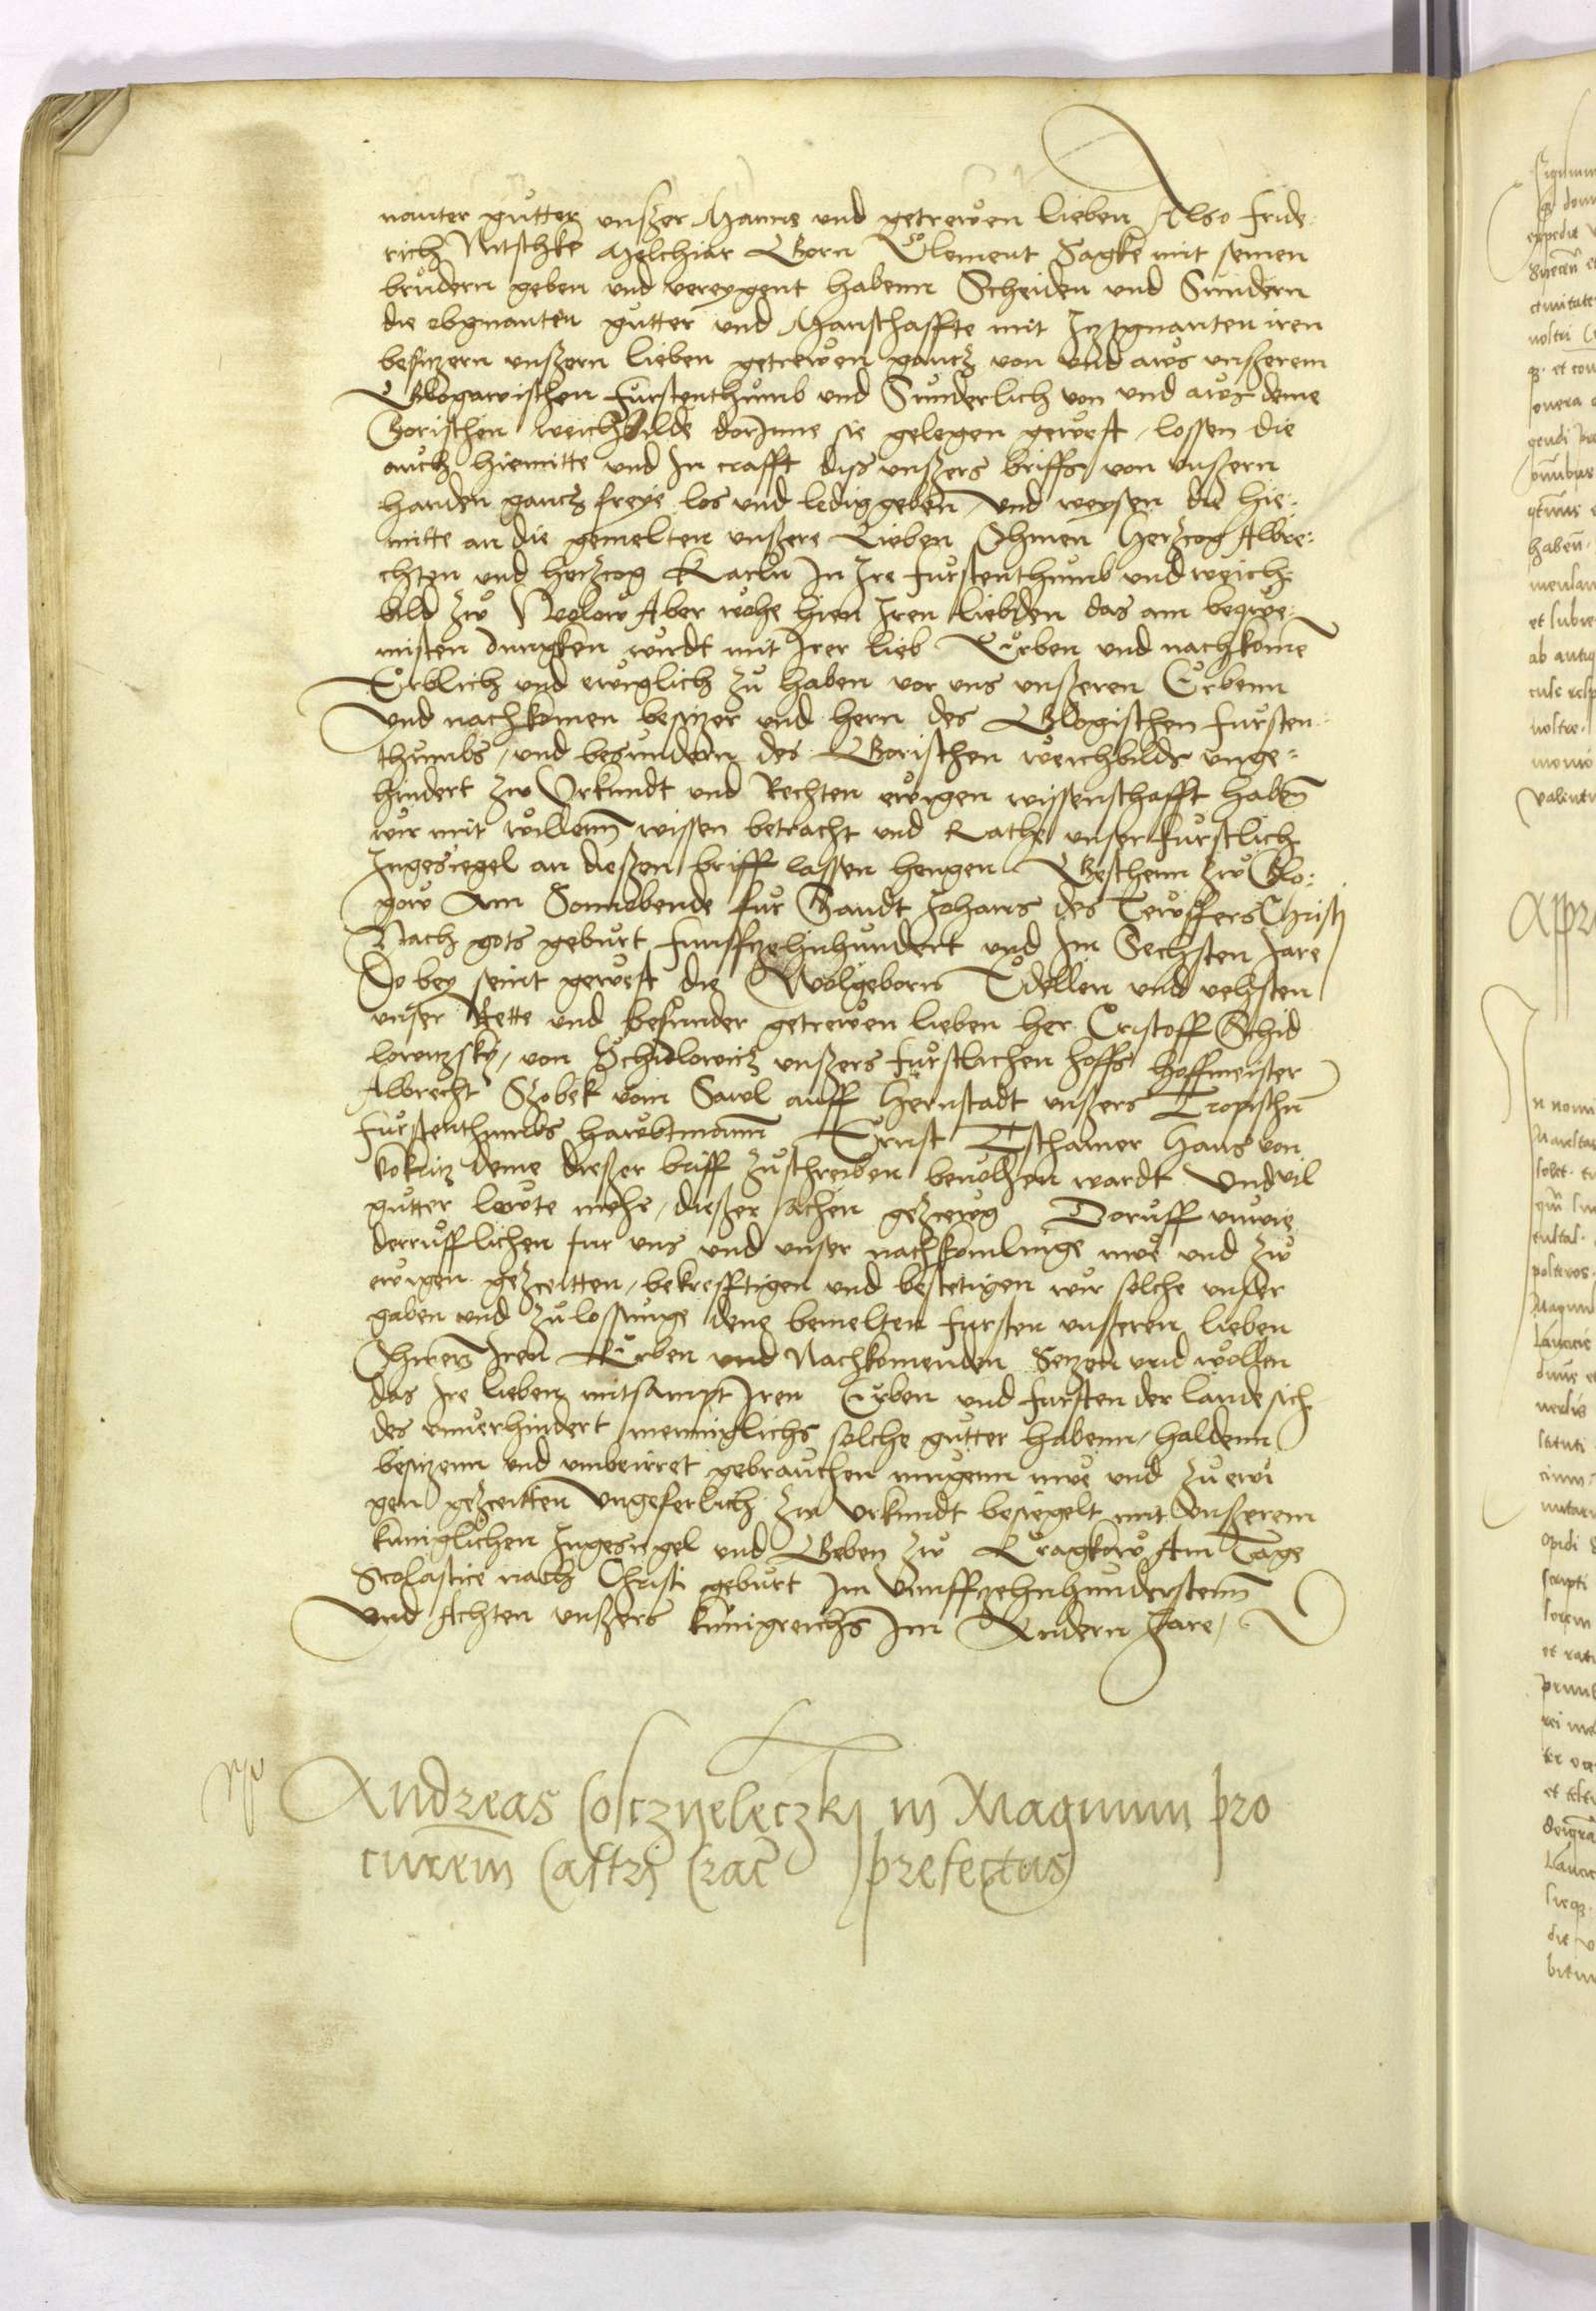 nanter gutter unßer Manne und getrewen lieben Also fride
rich Nitschke Melchiar Gorn Clement Sagke mit seinen
brudern geben und vereygent habenn Scheiden und Sundern
die obgnanten gutter und Manschaffte mit Itztgnanten iren
besitzern unßern lieben getrewen gantz von und aws unßerem
Glogawischen furstenthumb und Sunderlich von und aws deme
Gorischen weichbilde dorInne sie gelegen gewest, lossen die
auch hiemitte und In crafft diss unßers briffs von unßern
handen gantz freye los und ledig geben, und weysen die hie:
mitte an die gemelten unßere Lieben Ohmen Hertzog Albre:
chten und hertzog Karln In Ire furstenthumb und weich:
bild zw Wolow Aber wohe hien Iren liebden das am beqwe:
misten dungken wirdt mit Irer lieb Erben und nachkomē
Erblich und ewiglich zu haben vor uns unßeren Erbenn
Und nachkomen besitzer und hern des Glogischen fursten
thumbs, und besundern des Gorischen weichbilds unge:
hindert zw Urkundt und Rechten ewigen wissenschafft habē
wir mit willenn wissen betracht und Rathe unser furstlich
Ingesiegel an dießen briff lassen hengen Geschenn zw Glo:
gow Am Sonnobende fur Sandt Johans des Tewffers Christi
Nach gots geburt funffzehnhundert und Im Sechsten Jare
Do bey seint gewest die Wolgeborn Edellen und vehsten
unser Rette und besunder getrewen lieben her Cristoff Schid
lowitzsky, von Schidlowitz unßers furstlichen hoffs hoffmeister
Albrecht Szobek vom Sawl auff Hernstadt unßers Troppischn
furstenthumbs hawbtmann Ernst Tschamer Hans von
kokritz deme dießer briff zuschreiben bevolhen wardt Und vil
gutter lewte mehr, dießer sachen getzewg Doruff unwie
derrufflichen fur uns und unser nachkomlinge nwe und zw
ewigen getzeitten, bekrefftigen und bestetigen wir solche unser
gaben und zulossunge dene bemelten fursten unßeren lieben
Ohmen Iren Erben und Nachkomenden Setzen und wollen
das Ire lieben mitsampt Iren Erben und fursten der lande sich
des unverhindert menniglichs solche gutter habenn, haldenn
besitzenn und unbeirret gebrauchen mugenn nwe und zu ewi
gen getzeitten ungeferlich zw Urkundt besiegelt mit unßerem
kuniglichen Ingesigel und Geben zw Kragkow Am Tage
Scolastice nach Christi geburt Im Funffzehnhunderstenn
Und Achten unßers kunigreichs Im Andern Jare,
Andreas Cosczyeleczki in Magnum pro
curem Castri Crac prefectus